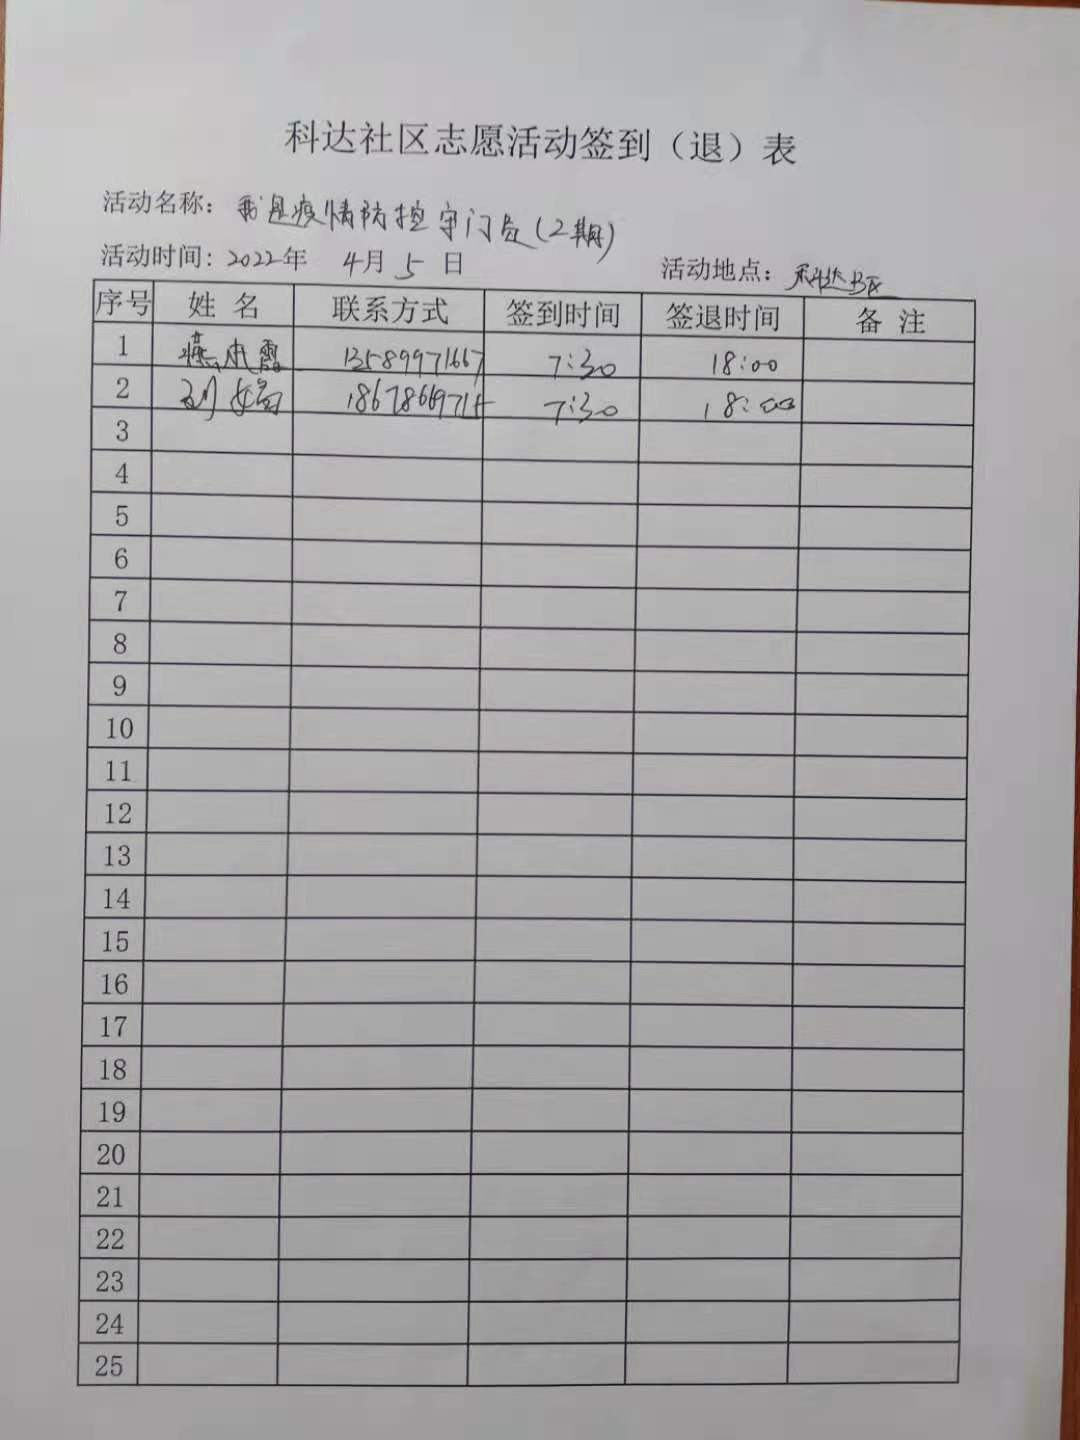 科达社区志愿活动签到（退）表
活动名称：我是疫情防控守门员(2期)
活动时间：2022年 4月5日 活动地点：科达B区
序号 姓 名 联系方式 签到时间 签退时间 备 注
1 燕 霞 13589971667 7:30 18:00
2 刘 7:30 18:00
3
4
5
6
7
8
9
10
11
12
13
14
15
16
17
18
19
20
21
22
23
24
25